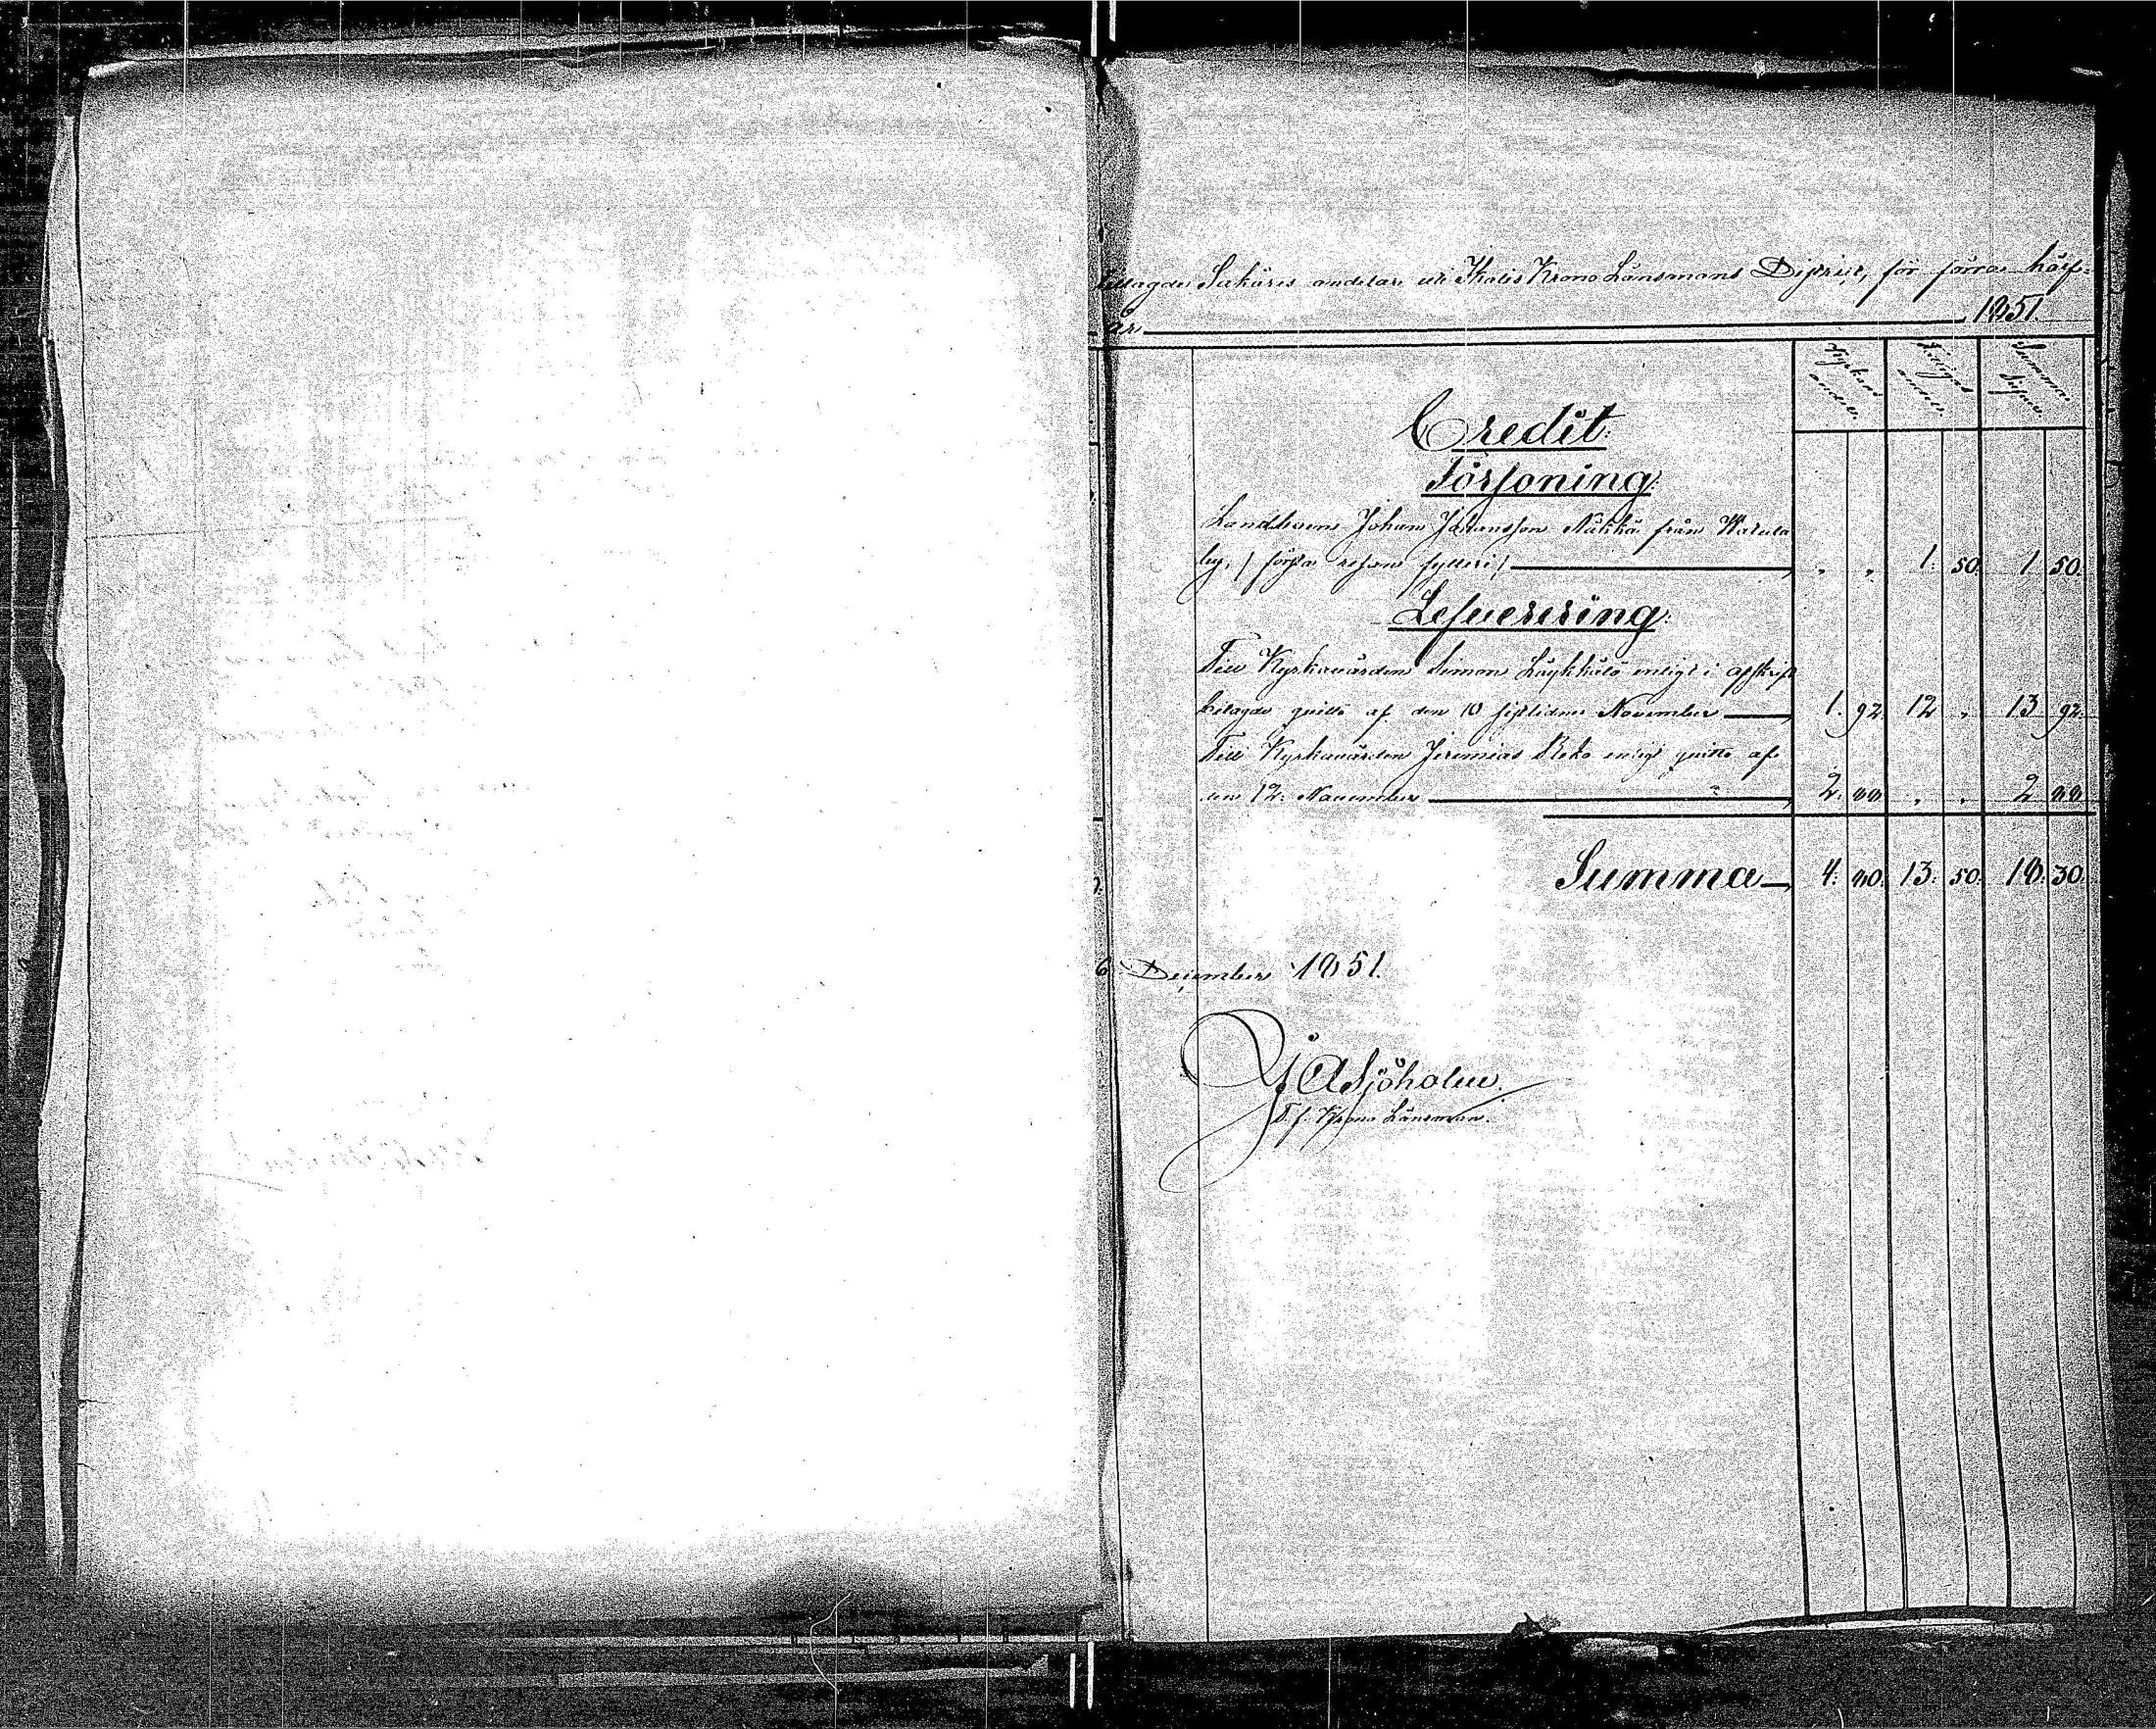 Saköres andelar uti Ikalis Krono Länsmans District, för förra hälf-
år 1851
Kyrkans andel.
Fattigas andel.
Summa Silfver.
Credit:
Försoning:
Landbonde Johan Johansson Näkkä från Watula
by, / första resans fylleri / „ „ 1. 50. 1 50.
Lefverering:
Till Kyrkovärden Simon enligt i afskrift
bilagde quitto af den 10 sistlidne November 1. 92 12 „ 13 92.
Till Kyrkovärden Jeremias enligt quitto af
den 12. November 2. 88 „ „ 2 88
Summa 4. 80. 13. 50. 18. 30.
6 December 1851.
Sjöholm.
T. f. Krono Länsman.